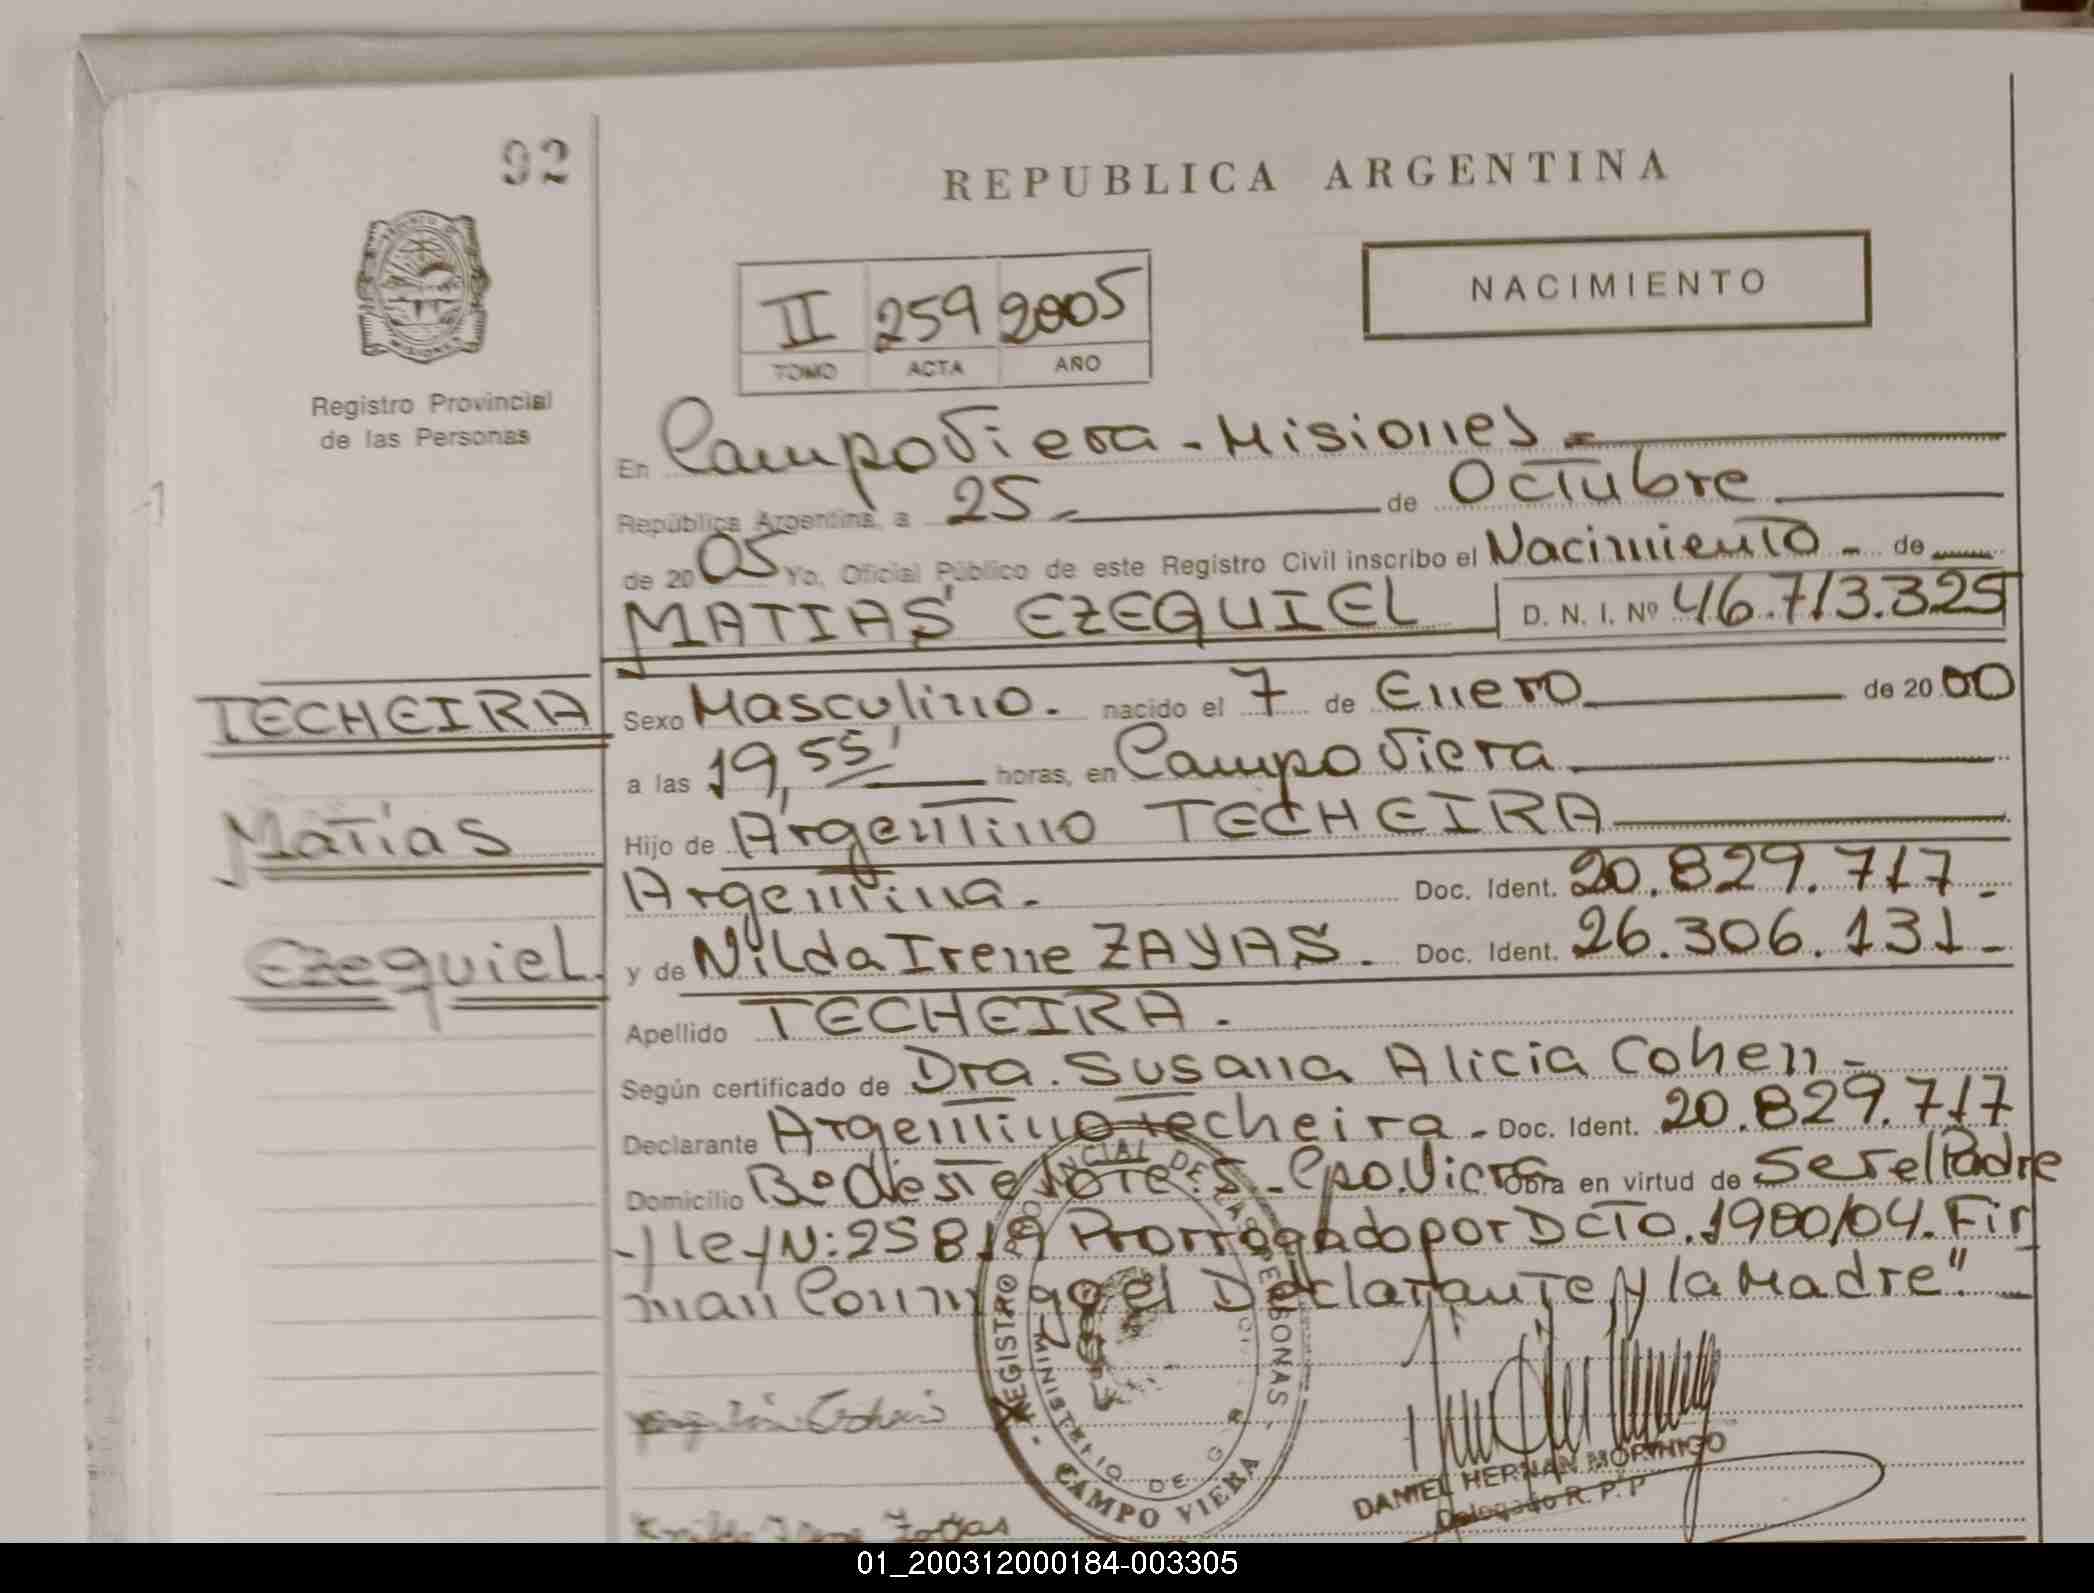 92
REPUBLICA ARGENTINA
NACIMIENTO
II 259 2005
TOMO ACTA AÑO
Registro Provincial
de las Personas
En Campo Viera - Misiones -
República Argentina, a 25 - de Octubre
de 2005 Yo, Oficial Público de este Registro Civil inscribo el Nacimiento - de
MATIAS EZEQUIEL D. N. I. Nº 46.713.325
TECHEIRA
Matías
Ezequiel.
Sexo Masculino. nacido el 7 de Enero de 2000
a las 19,55' horas, en Campo Viera
Hijo de Argentino TECHEIRA
Argentina. Doc. Ident. 20.829.717 -
y de Nilda Irene ZAYAS. Doc. Ident. 26.306.131 -
Apellido TECHEIRA.
Según certificado de Dra. Susana Alicia Cohen -
Declarante Argentino techeira - Doc. Ident. 20.829.717
Domicilio Bº Oeste Lote: 5 - Cpo. Viera Obra en virtud de Ser el Padre
-y ley N: 25819 Prorrogado por DCTO. 1900/04. Fir
man Conmigo el Declarante y la Madre"
REGISTRO PROVINCIAL DE LAS PERSONAS -
MINISTERIO DE
- CAMPO VIERA
DANIEL HERNAN MORINIGO
Delegado R. P. P
01_200312000184-003305